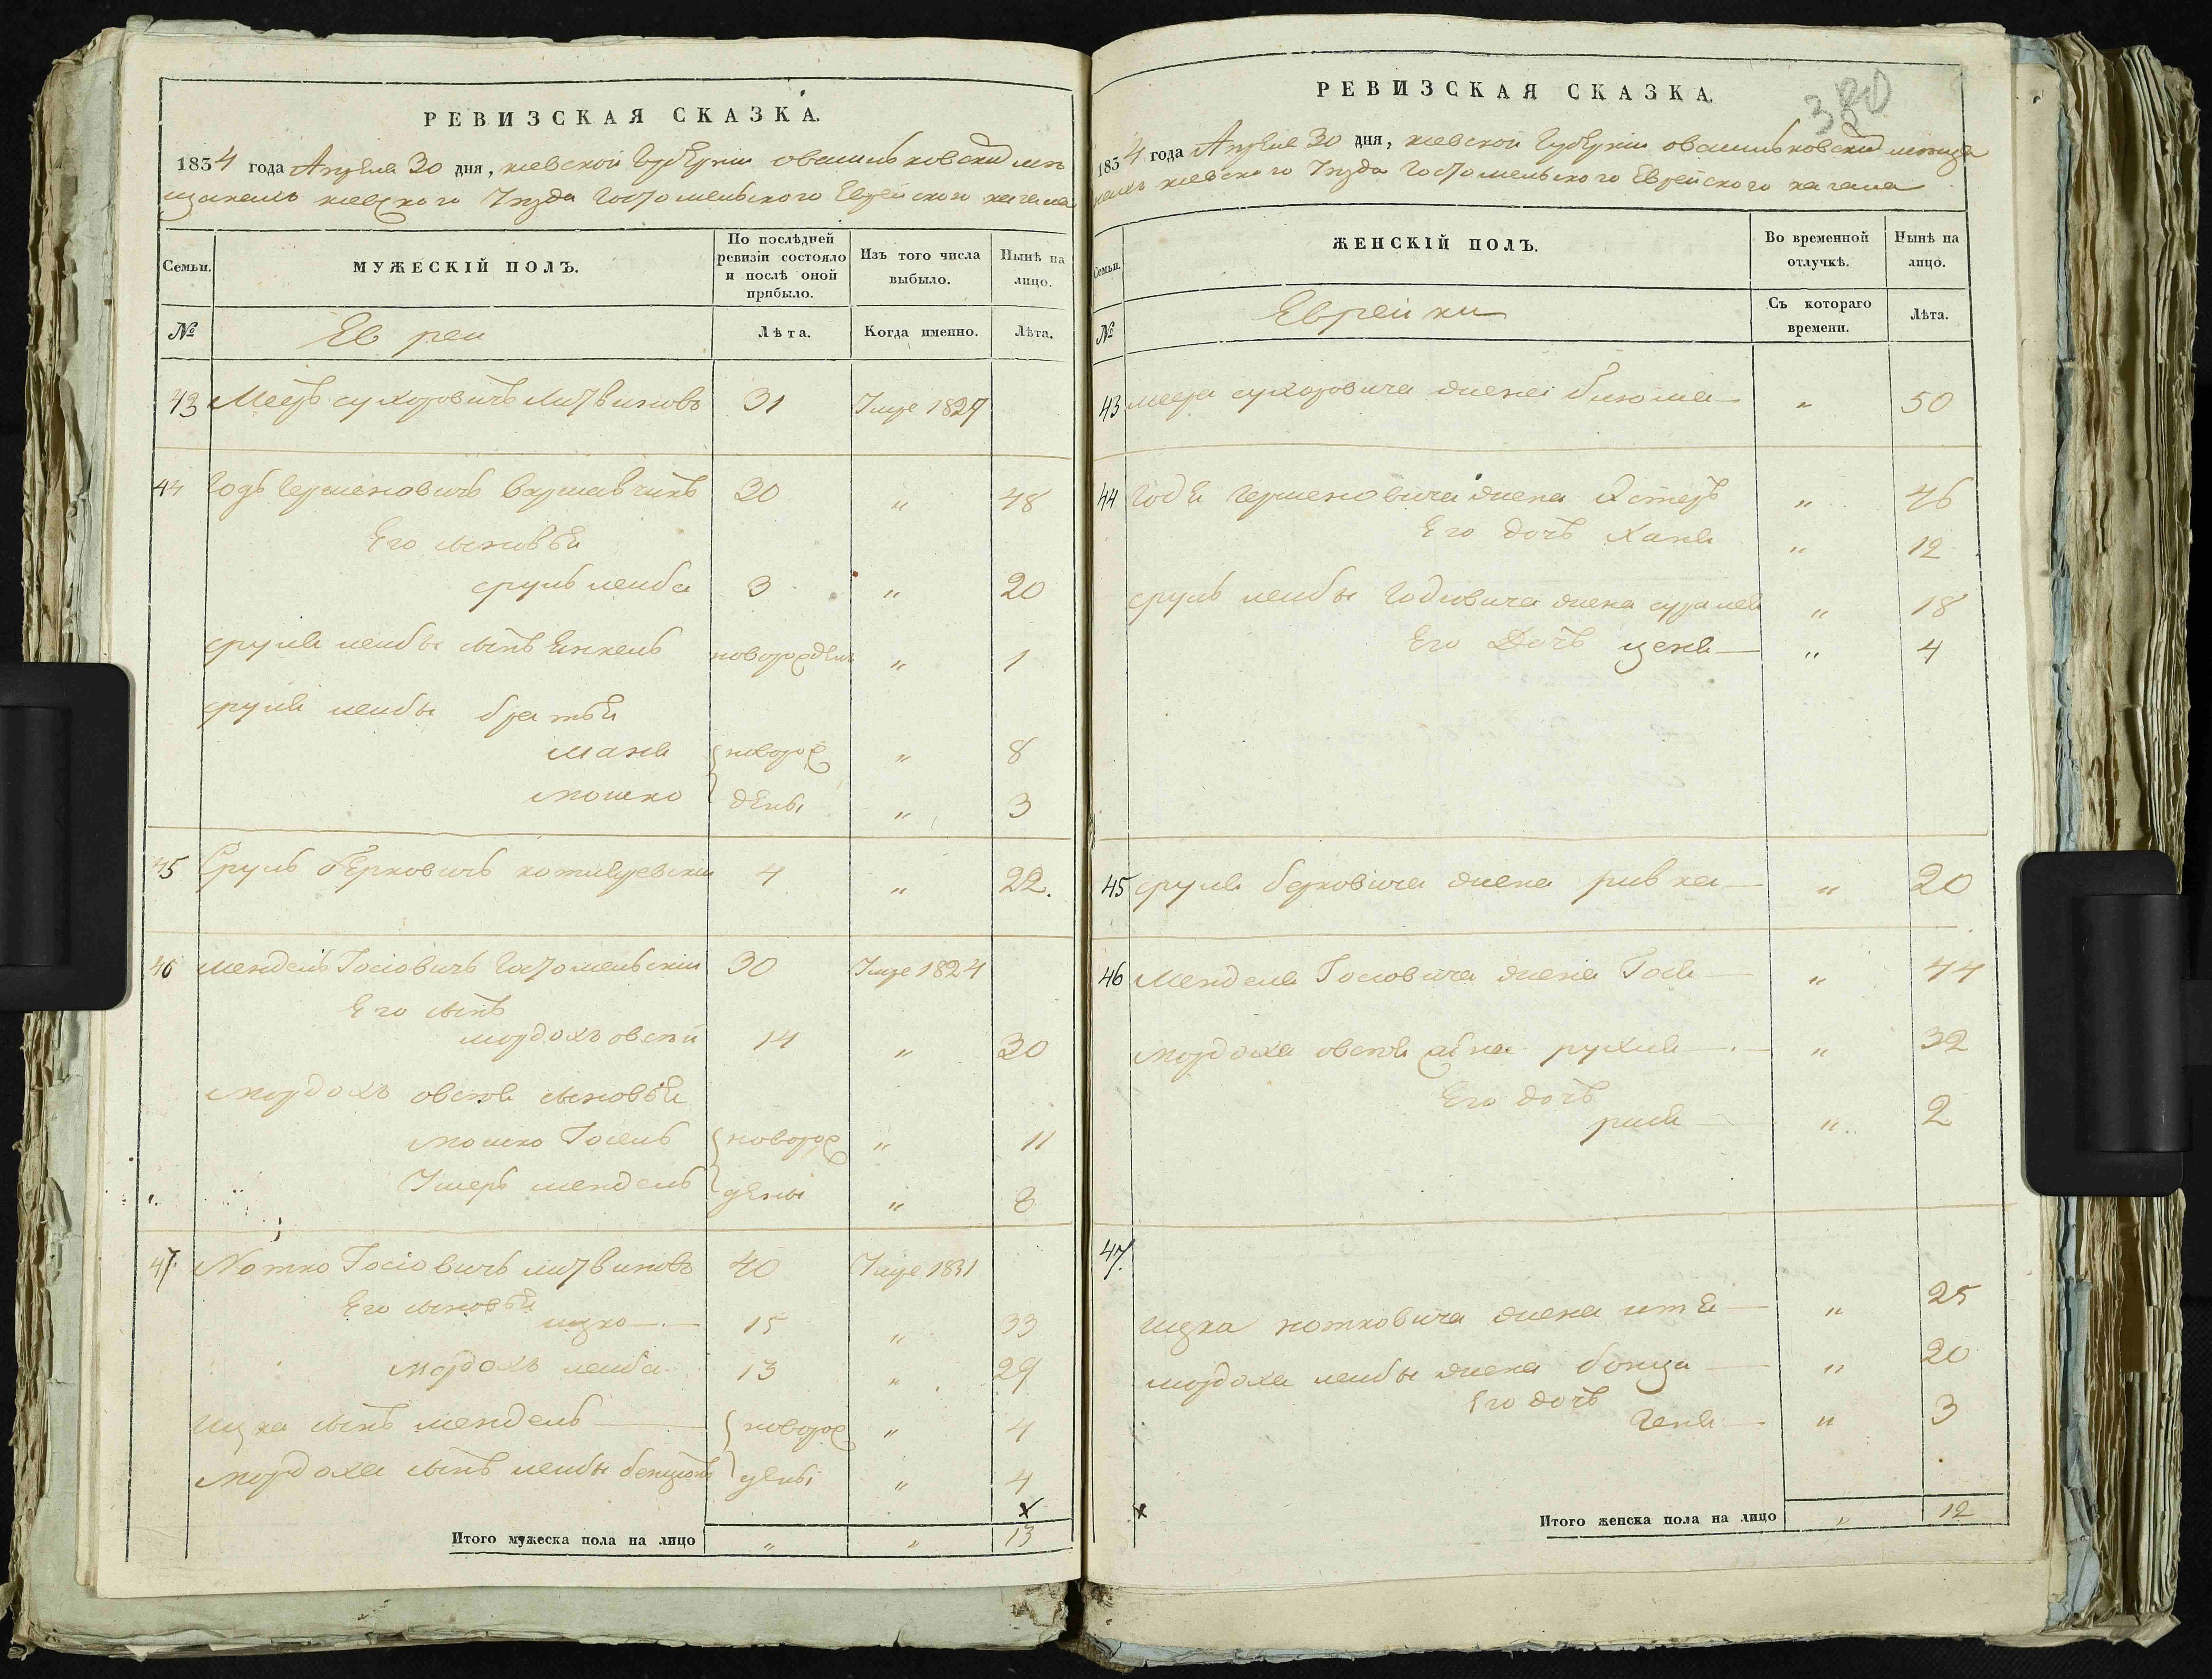 РЕВИЗСКАЯ СКАЗКА.
1834 года Апреля 30 дня, киевской Губернiи овасильковский мѣ
щанахъ киевского Уезда Гостомельского Еврейского кагала
Семьи. МУЖЕСКIЙ ПОЛЪ. По послѣдней ревизiи состояло и послѣ оной прибыло. Изъ того числа выбыло. Нынѣ на лицо.
№ Евреи Лѣта. Когда именно. Лѣта.
43 Мееръ сухоровичъ Литвиновъ 31 Умре 1827
44 Годъ Гершеновичъ Варшавчикъ 30 " 48
Его сыновья
сруль лейба 3 " 20
сруля лейбы сынъ Енкель новорожден " 1
сруля лейбы братья
маня {новорож " 8
мошко дены " 3
45 Сруль берковичъ 4 " 22.
46 мендель Iосiовичъ Гостомельскiй 30 Умре 1824
Его сынъ
мордохъ овсiй 14 " 30
мордохъ овсiя сыновья
мошко Iосель {новорож " 11
Умеръ мендель дены " 8
47. Nотко Iосiовичъ литвиновъ 40 Умре 1831
Его сыновья
ицко 15 " 33
мордохъ лейба 13 " 29
ицка сынъ мендель {новорож " 4
мордоха сынъ лейбы бенционъ дены " 4
x
Итого мужеска пола на лицо " " 13
380
РЕВИЗСКАЯ СКАЗКА.
1834 года Апреля 30 дня, киевской Губернiи овасильковский мѣща
нахъ киевского Уезда Гостомельского Еврейского кагала
Семьи. ЖЕНСКIЙ ПОЛЪ. Во временной отлучкѣ. Нынѣ на лицо.
№ Еврейки Съ котораго времени. Лѣта.
43 меера сухоровича жена блюма " 50
44 Годя Гершеновича жена Эстеръ " 46
Его дочь Хана " 12
сруль лейбы Годиовича жена сура " 18
Его Дочь цена " 4
45 сруля берковича жена ривка " 20
46 Менделя Iосиовича жена Iося " 44
мордоха овсiя жена рухля " 32
Его дочь
рися " 2
47.
ицка нотковича жена итя " 25
мордоха лейбы жена бонца " 20
Его дочь
Геня " 3
x
Итого женска пола на лицо " 12